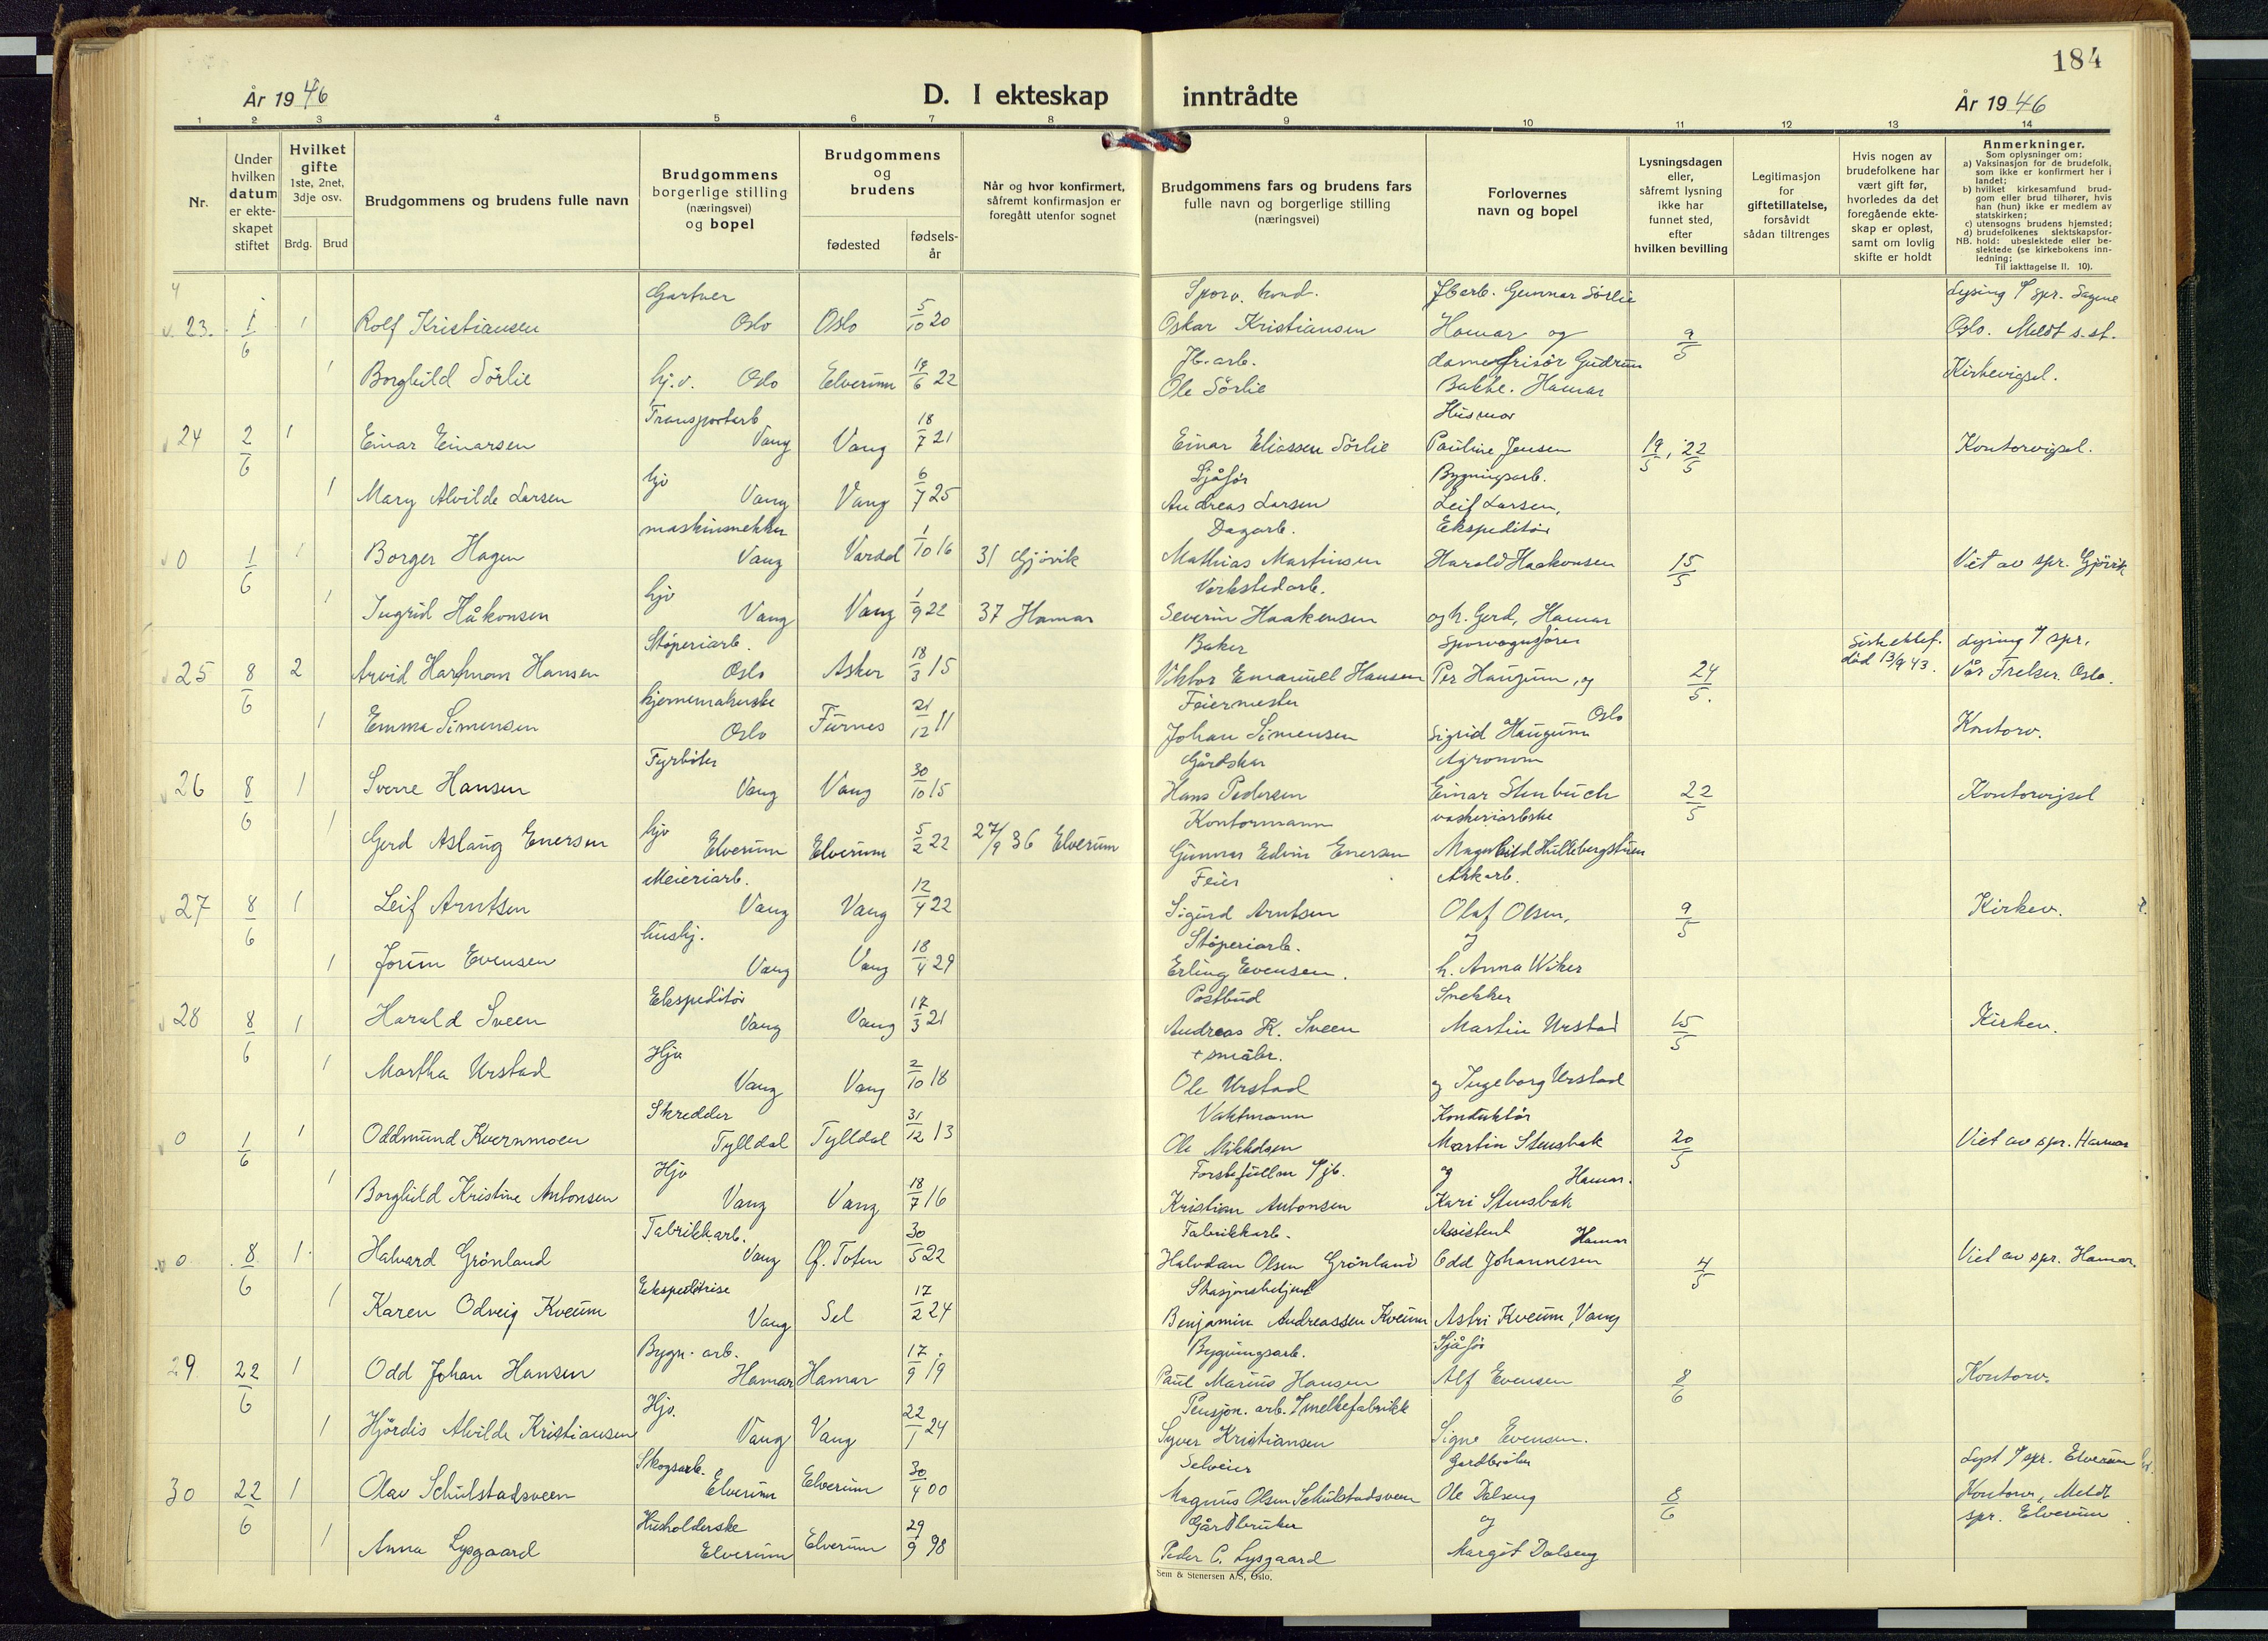 184
År 1946
D. I ekteskap inntrådte
År 1946
1 2 3 4 5 6 7 8 9 10 11 12 13 14
Nr.
Under hvilken datum er ekte-skapet stiftet
Hvilket gifte 1ste, 2net, 3dje osv.
Brdg. Brud
Brudgommens og brudens fulle navn
Brudgommens borgerlige stilling (næringsvei) og bopel
Brudgommens og brudens
fødested fødsels-år
Når og hvor konfirmert, såfremt konfirmasjon er foregått utenfor sognet
Brudgommens fars og brudens fars fulle navn og borgerlige stilling (næringsvei)
Forlovernes navn og bopel
Lysningsdagen eller, såfremt lysning ikke har funnet sted, efter hvilken bevilling
Legitimasjon for giftetillatelse, forsåvidt sådan tiltrenges
Hvis nogen av brudefolkene har vært gift før, hvorledes da det foregående ekte-skap er opløst, samt om lovlig skifte er holdt
Anmerkninger.
Som oplysninger om:
a) Vaksinasjon for de brudefolk, som ikke er konfirmert her i landet;
b) hvilket kirkesamfund brud-gom eller brud tilhører, hvis han (hun) ikke er medlem av statskirken;
c) utensogns brudens hjemsted;
d) brudefolkenes slektskapsfor-
NB. hold: ubeslektede eller be-slektede (se kirkebokens inn-ledning;
Til iakttagelse II. 10).
Gartner Sporv. kond. Jb arb. Gunnar Sørlie Lysing v/ spr. Sagene
23. 1/6 1 Rolf Kristiansen Oslo Oslo 5/10 20 Oskar Kristiansen Hamar og 9/5 Oslo. Meldt s.st.
Jb. arb. damefrisør Gudrun Kirkevigsel.
1 Borghild Sørlie hj.v. Oslo Elverum 19/6 22 Ole Sørlie Bakke. Hamar
Transportarb Husmor
24 2/6 1 Einar Einarsen Vang Vang 18/7 21 Einar Eliassen Sørlie Pauline Jensen 19/5, 22/5 Kontorvigsel.
hjv Sjåfør Bygningsarb.
1 Mary Alvilde Larsen Vang Vang 6/7 25 Andreas Larsen Leif Larsen,
maskinsnekker Dagarb. Ekspeditør
0 1/6 1 Borger Hagen Vang Vardal 1/10 16 31 Gjøvik Mathias Martinsen Harald Haakonsen 15/5 Viet av spr. Gjøvik
hjv Verkstedarb.
1 Ingrid Håkonsen Vang Vang 1/9 22 37 Hamar Severin Haakensen og h. Gerd, Hamar
Støperiarb. Baker Sporvognsfører Siste ektef. Lysing v/ spr.
25 8/6 2 Arvid Hartman Hansen Oslo Asker 18/3 15 Viktor Emanuell Hansen Per Haugum, og 24/5. død 13/9 43. Vår Frelser. Oslo.
hjemmeh Feiermester Oslo
1 Emma Simensen Oslo Furnes 21/12 11 Johan Simensen Sigrid Haugum Kontorv.
Fyrbøter Gårdsbr Agronom
26 8/6 1 Sverre Hansen Vang Vang 30/10 15 Hans Pedersen Einar Stenbuch 22/5 Kontorvigsel
hjv Kontormann vaskeriarbske
1 Gerd Aslaug Enersen Elverum Elverum 5/2 22 27/9 36 Elverum Gunnar Edvin Enersen Magnhild Hullebergstuen
Meieriarb. Feier Arb.
27 8/6 1 Leif Arntsen Vang Vang 12/4 22 Sigurd Arntsen Olaf Olsen, 9/5 Kirkev.
hushj. Støperiarb. og
1 Jorun Evensen Vang Vang 18/4 29 Erling Evensen. h. Anna Wiker
Ekspeditør Postbud Snekker
28 8/6 1 Harald Sveen Vang Vang 17/3 21 Andreas K. Sveen Martin Urstad 15/5 Kirkev.
Hjv + småbr.
1 Martha Urstad Vang Vang 2/10 18 Ole Urstad og Ingeborg Urstad
Skredder Vaktmann Konduktør
0 1/6 1 Oddmund Kvernmoen Tylldal Tylldal 31/12 13 Ole Mikkelsen Martin Stensbak 20/5 Viet av spr. Hamar
Hjv Forstefullm v/jb. og Hamar.
1 Borghild Kristine Antonsen Vang Vang 18/7 16 Kristian Antonsen Kari Stensbak
Fabrikkarb. Fabrikkarb. Assistent Hamar
0 8/6 1 Halvard Grønland Vang Ø. Toten 30/5 22 Halvdan Olsen Grønland Odd Johannesen 4/5 Viet av spr. Hamar.
Ekspeditrise Stasjonsbetjent
1 Karen Odveig Kveum Vang Sel 17/2 24 Benjamin Andreassen Kveum Astri Kveum, Vang
Bygn. arb. Bygningsarb. Sjåfør
29 22/6 1 Odd Johan Hansen Hamar Hamar 17/9 19 Paul Marius Hansen Alf Evensen 8/6 Kontorv.
Hjv. Pensjon. arb. v/melkefabrikk
1 Hjørdis Alvilde Kristiansen Vang Vang 22/1 24 Syver Kristiansen Signe Evensen.
Skogsarb. Selveier Gardbruker Lyst v/ spr. Elverum
30 22/6 1 Olav Schulstadsveen Elverum Elverum 30/4 00 Magnus Olsen Schulstadsveen Ole Dalseng 8/6 Kontorv, Meldt
Husholderske Gårdbruker og spr. Elverum
1 Anna Lysgaard Elverum Elverum 29/9 98 Peder C. Lysgaard Margit Dalseng
Sem & Stenersen A/S, Oslo.